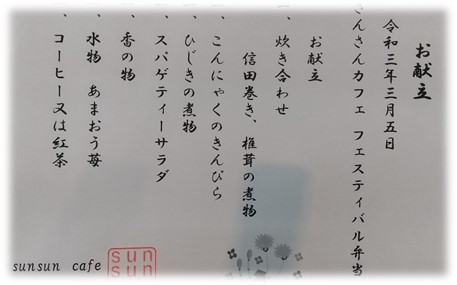 お献立
令和三年三月五日
さんさんカフェ フェスティバル弁当
お献立
、炊き合わせ
信田巻き、椎茸の煮物
、こんにゃくのきんぴら
、ひじきの煮物
、スパゲティーサラダ
、香の物
、水物 あまおう苺
、コーヒー又は紅茶
sunsun cafe
sun
sun